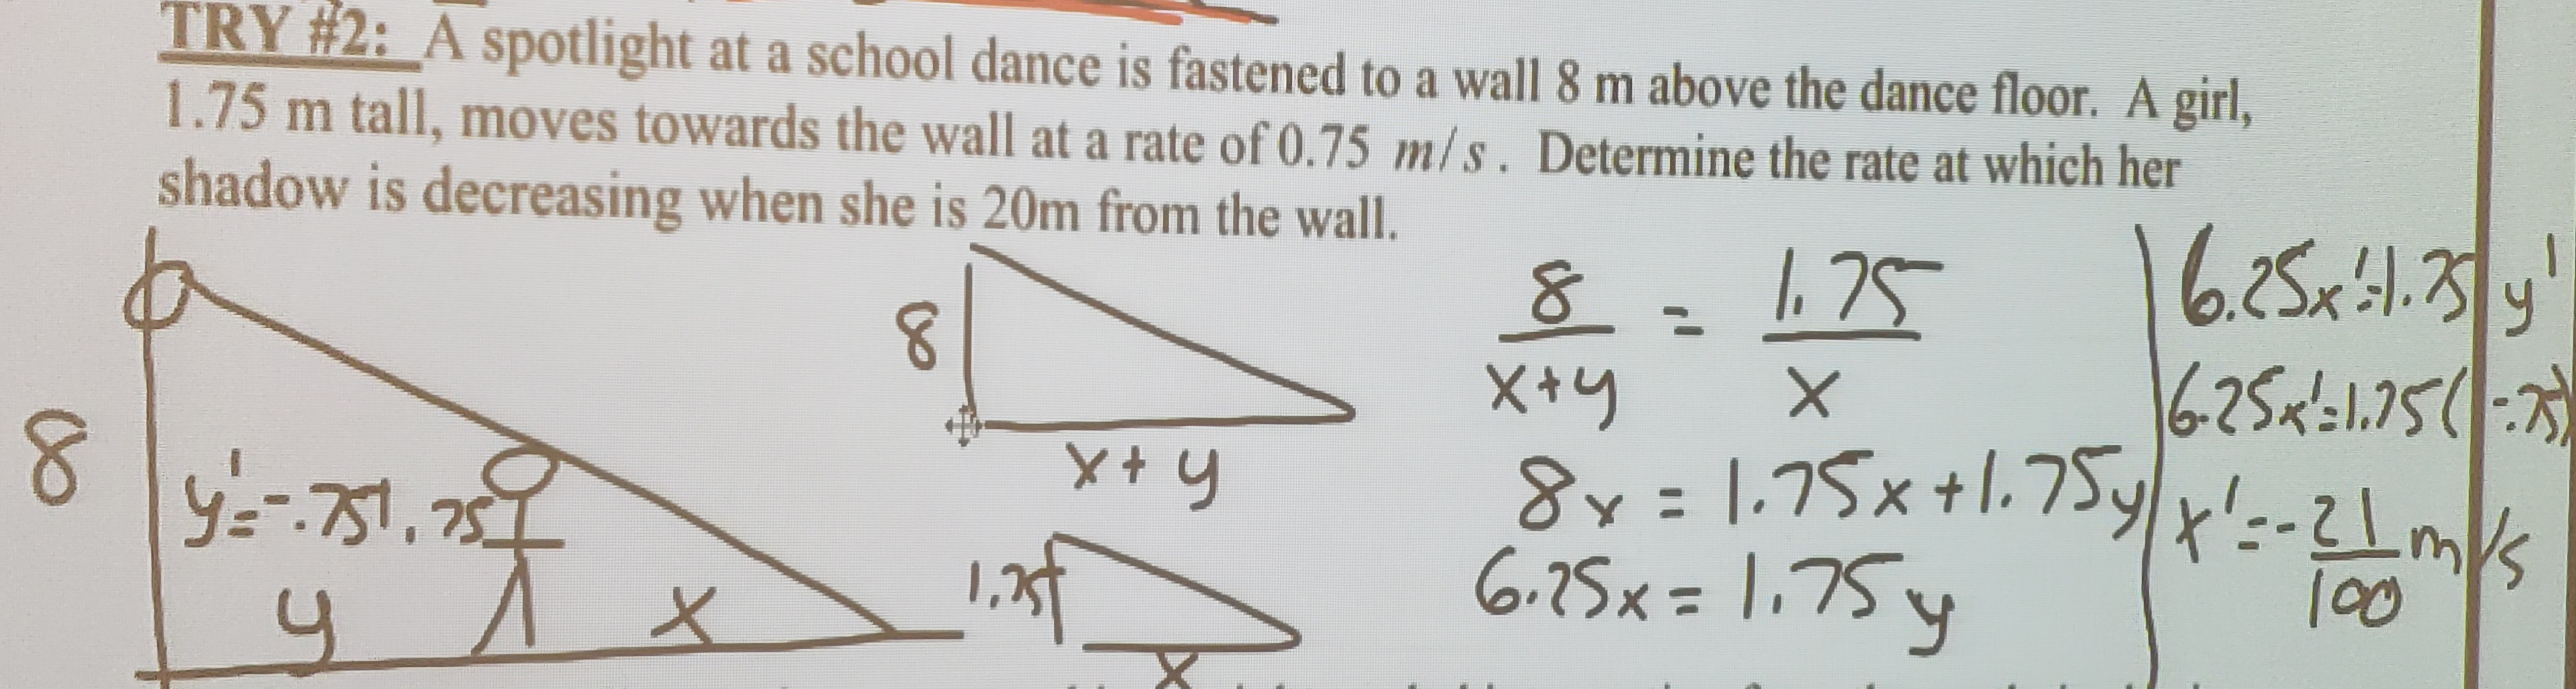 TRY #2: A spotlight at a school dance is fastened to a wall 8 m above the dance floor. A girl,
1.75 m tall, moves towards the wall at a rate of 0.75 m/s. Determine the rate at which her
shadow is decreasing when she is 20m from the wall.
8
y'=-.75
1.75
y
x
8
x+y
1.75
x
8/(x+y) = 1.75/x
8x = 1.75x+1.75y
6.25x = 1.75y
6.25x'=1.75y'
6.25x'=1.75(-.75)
x'=-21/100 m/s